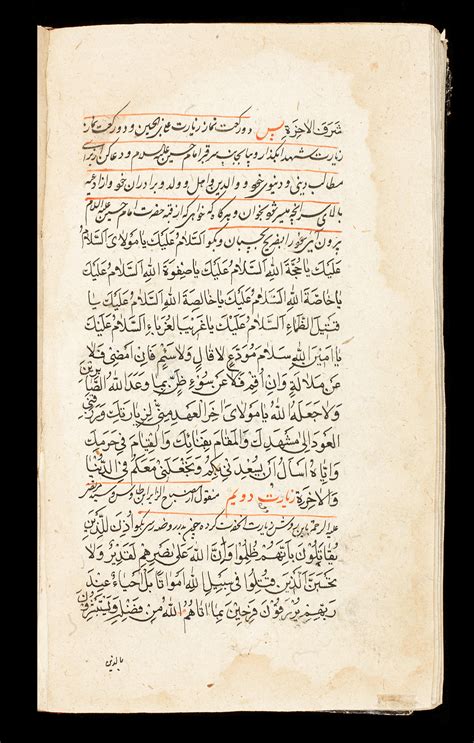 شرف الاخرة پس دو رکعت نماز زیارت علی بن الحسین و دو رکعت نماز
زیارت شهدا بگذار و بیا بجانب سر قبر امام حسین علیه السلام و دعا کن از برای
مطالب دینی و دنیوی خود و والدین و اهل و ولد و برادران خود و از ادعیه
بالای سر آنچه میسر شود بخوان و هرگاه که خواهی که از قبه حضرت امام حسین علیه السلام
بیرون آئی خود را بضریح بچسبان و بگو السلام علیک یا مولای السلام
علیک یا حجة الله السلام علیک یا صفوة الله السلام علیک
یا خاصة الله السلام علیک یا خالصة الله السلام علیک یا
قتیل الظماء السلام علیک یا غریب الغرباء السلام علیک
یا امین الله سلام مودع لا قال ولا سئم فان امضی فلا
عن ملالة وان اقم فلا عن سوء ظن بما وعد الله الصابرین
ولا جعله الله یا مولای اخر العهد منی لزیارتک ورزقنی
العود الی مشهدک والمقام بفنائک والقیام فی حرمک
وایاه اسأل ان یسعدنی بکم وتجعلنی معکم فی الدنیا
والاخرة زیارت دویم منقول از مصباح الزائر ابن طاوس و سید مرتضی
علیه الرحمة باین روش زیارت آنحضرت کرده چون بدر روضه رسی بگو اذن للذین
یقاتلون بانهم ظلموا وان الله علی نصرهم لقدیر ولا
تحسبن الذین قتلوا فی سبیل الله امواتا بل احیاء عند
ربهم یرزقون فرحین بما اتاهم الله من فضله ویستبشرون
بالذین